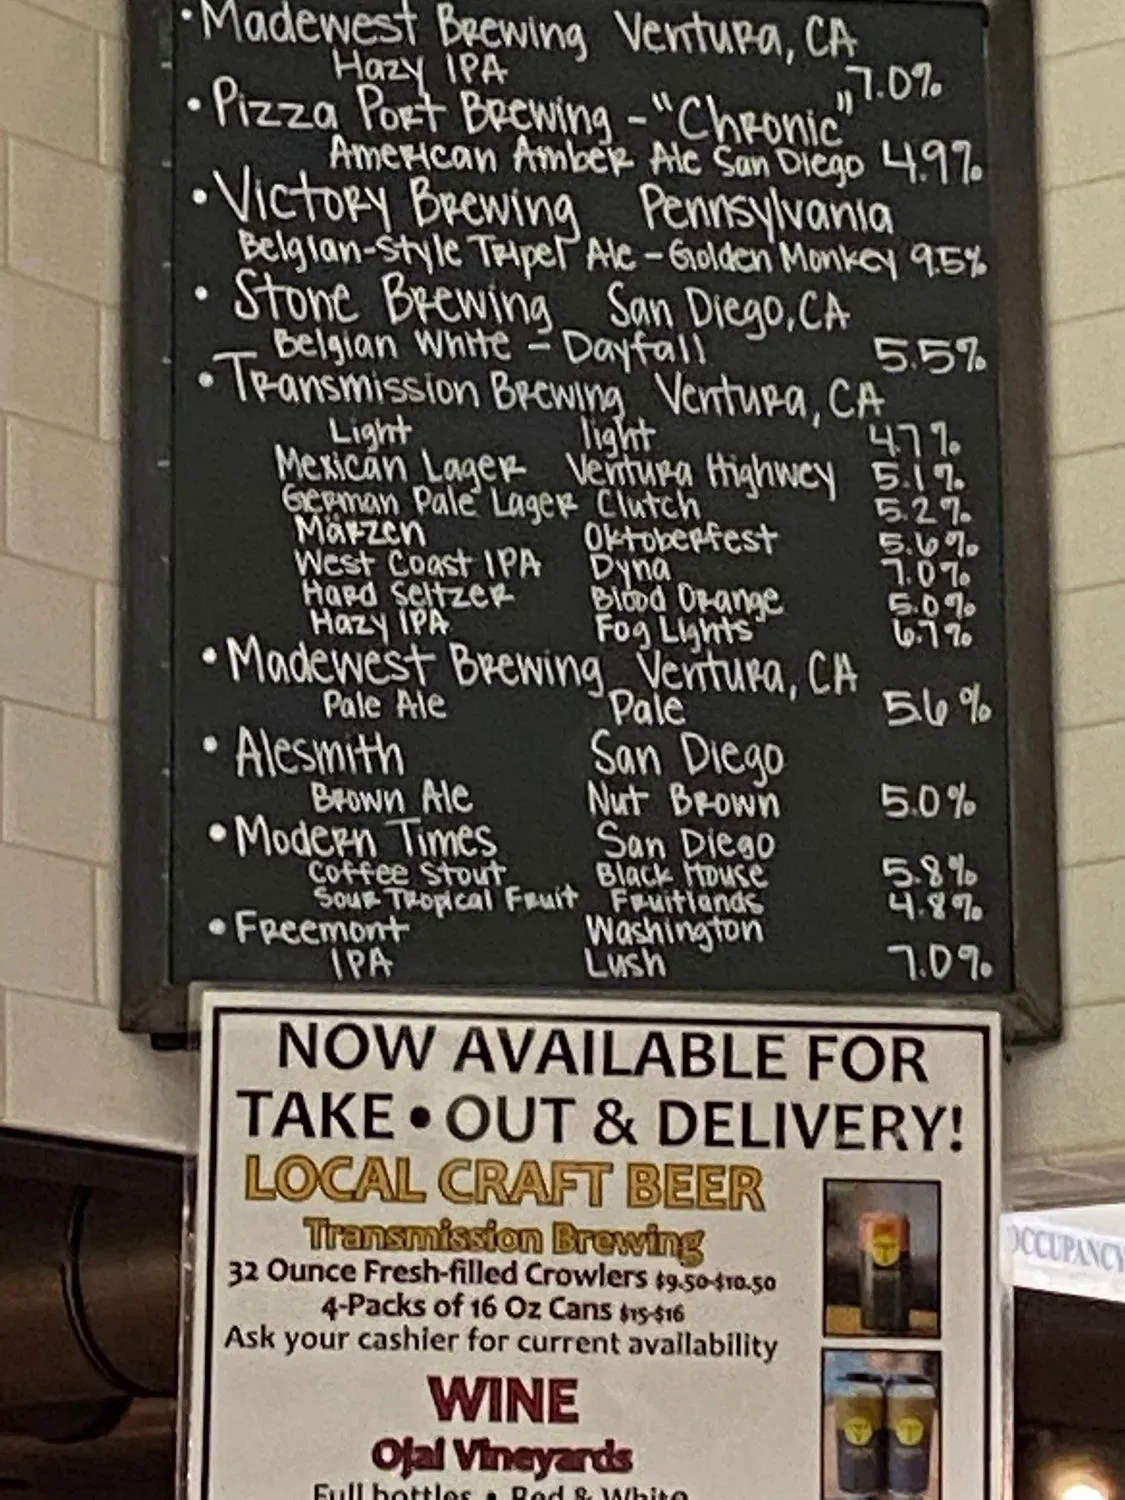 • Madewest Brewing Ventura, CA
Hazy IPA 7.0%
• Pizza Port Brewing - "Chronic"
American Amber Ale San Diego 4.9%
• Victory Brewing Pennsylvania
Belgian-Style Tripel Ale - Golden Monkey 9.5%
• Stone Brewing San Diego, CA
Belgian White - Dayfall 5.5%
• Transmission Brewing Ventura, CA
Light light 4.7%
Mexican Lager Ventura Highwey 5.1%
German Pale Lager Clutch 5.2%
Märzen Oktoberfest 5.6%
West Coast IPA Dyna 7.0%
Hard Seltzer Blood Orange 5.0%
Hazy IPA Fog Lights 6.7%
• Madewest Brewing Ventura, CA
Pale Ale Pale 5.6%
• Alesmith San Diego
Brown Ale Nut Brown 5.0%
• Modern Times San Diego
Coffee Stout Black House 5.8%
Sour Tropical Fruit Fruitlands 4.8%
• Freemont Washington
IPA Lush 7.0%
NOW AVAILABLE FOR
TAKE • OUT & DELIVERY!
LOCAL CRAFT BEER
Transmission Brewing
32 Ounce Fresh-filled Crowlers $9.50-$10.50
4-Packs of 16 Oz Cans $15-$16
Ask your cashier for current availability
WINE
Ojai Vineyards
Full bottles • Red & White
OCCUPANCY